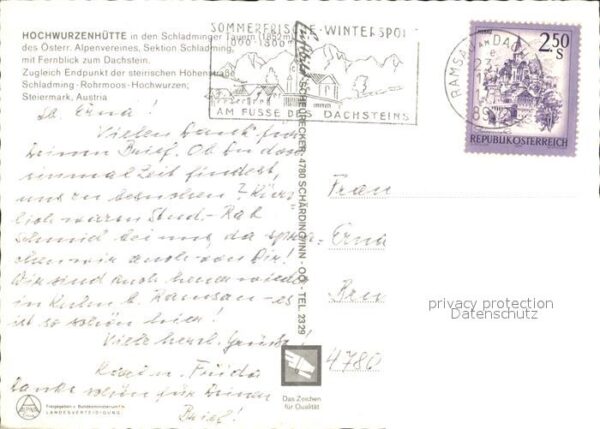 HOCHWURZENHÜTTE in den Schladminger Tauern (1852 m)
des Österr. Alpenvereines, Sektion Schladming,
mit Fernblick zum Dachstein.
Zugleich Endpunkt der steirischen Höhenstraße
Schladming - Rohrmoos - Hochwurzen;
Steiermark, Austria
SOMMERFRISCHE - WINTERSPOR
1000-1800
AM FUSSE DES DACHSTEINS
RAMSAU AM DAC
23
89
2.50
S
REPUBLIK ÖSTERREICH
Lb. Erna!
Vielen Dank für
Deinen Brief. Ob Du doch
einmal Zeit findest,
uns zu besuchen? Kürz-
lich waren Stud.-Rat
Schmid bei uns, da sprachen
wir auch von Dir!
Wir sind auch heuer wieder
in Kulm b. Ramsau - es
ist so schön hier!
Viele herzl. Grüße!
Danke schön für Deinen
Brief!
SCHEURECKER · 4780 SCHÄRDING/INN · OÖ · TEL. 2329
Frau
Erna
4780
privacy protection
Datenschutz
Das Zeichen
für Qualität
Freigegeben v. Bundesministerium f.
LANDESVERTEIDIGUNG.